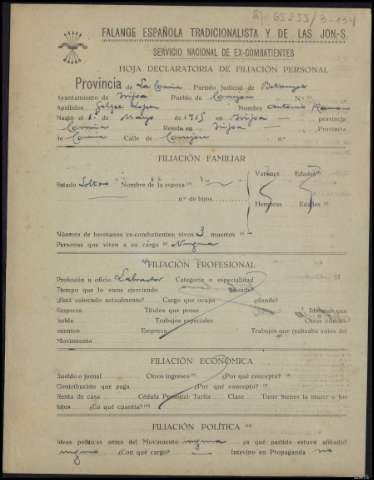 FALANGE ESPAÑOLA TRADICIONALISTA Y DE LAS JON-S.
SERVICIO NACIONAL DE EX-COMBATIENTES
HOJA DECLARATORIA DE FILIACIÓN PERSONAL
Provincia de La Coruña Partido Judicial de Betanzos
Ayuntamiento de Irijoa Pueblo de
Apellidos López Nombre Antonio Ramon
Nació el 1º de Mayo de 1915 en Irijoa provincia
Coruña Reside en Irijoa Provincia
de Coruña Calle de nº
FILIACIÓN FAMILIAR
Varones Edades
Estado Soltero Nombre de la esposa
n.º de hijos
Hembras Edades
Número de hermanos ex-combatientes vivos 3 muertos
Personas que viven a su cargo Ninguna
FILIACIÓN PROFESIONAL
Profesión u oficio Labrador Categoria o especialidad
Tiempo que lo viene ejerciendo
¿Está colocado actualmente? Cargo que ocupa
Empresa Títulos que posee Idiomas que
habla Trabajos especiales
Empresa Trabajos que realizaba antes del
Movimiento
FILIACIÓN ECONÓMICA
Sueldo o jornal Otros ingresos ¿Por qué concepto?
Contribución que paga ¿Por qué concepto?
Renta de casa Cédula Personal: Tarifa Clase Tiene bienes la mujer o los
hijos ¿En qué cuantía?
FILIACIÓN POLÍTICA
Ideas políticas antes del Movimiento ninguna en qué partido estuvo afiliado
ninguno ¿Con qué cargo? Intervino en Propaganda no